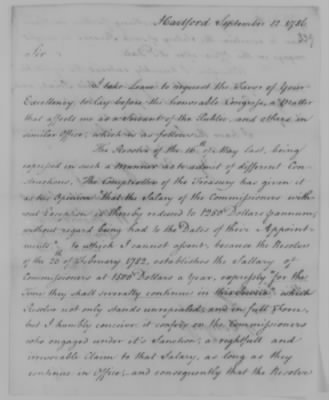 Hartford September 12 1786
Sir
I take Leave to request the Favor of Your
Excellency, to lay before the Honorable Congress, a Matter
that affects me as a Servant of the Public, and others in
similar Office, which is as follows.
The Resolve of the 16th of May last, being
expressed in such a manner as to admit of different Con-
structions, The Comptroller of the Treasury has given it
as his Opinion that the Salary of the Commissioners with
out Exception is thereby reduced to 1250 Dollars ℔ annum,
without regard being had to the Dates of their Appoint-
ments." to which I cannot assent, because the Resolve
of the 20th of February 1782, establishes the Sallary of
Commissioners at 1500 Dollars a Year, expressly "for the
Time they shall severally continue in this Service" which
Resolve not only stands unrepealed, and in full Force,
but I humbly conceive it confers on the Commissioners
who engaged under it's Sanction, a rightfull and
irrevocable Claim to that Salary, as long as they
continue in Office; and consequently that the Resolve